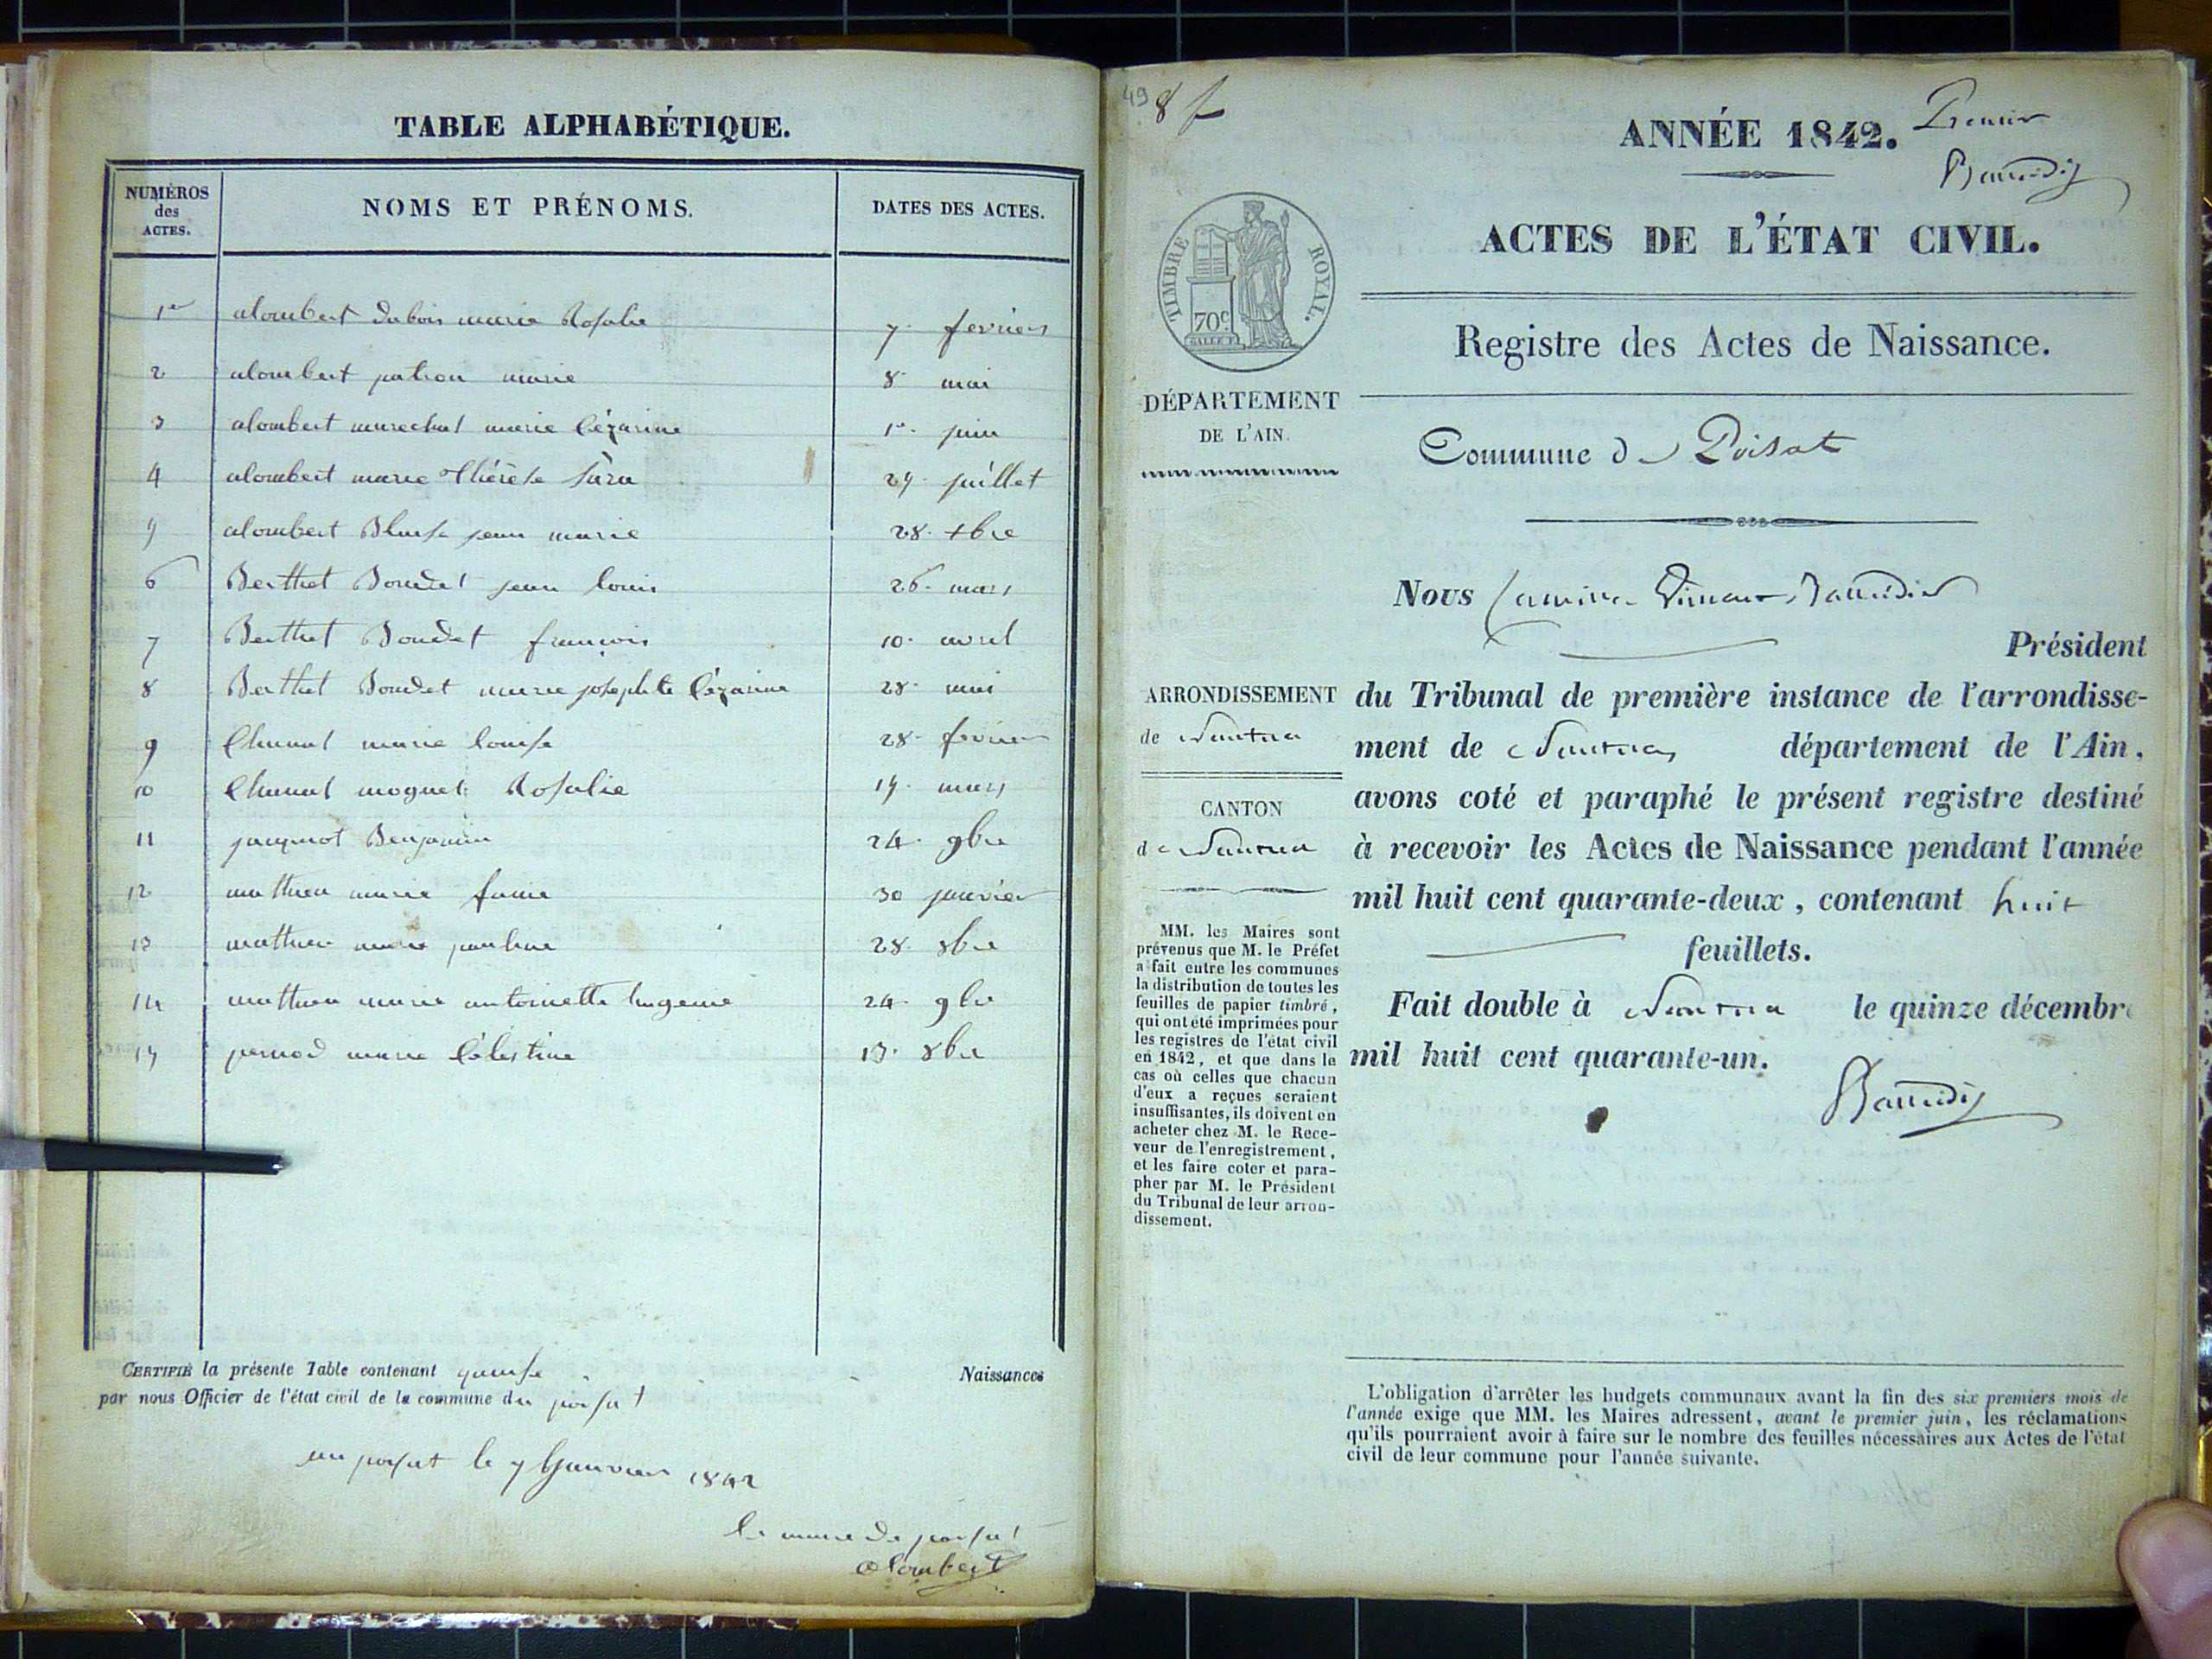 TABLE ALPHABÉTIQUE.
NUMÉROS des ACTES. NOMS ET PRÉNOMS. DATES DES ACTES.
1er alombert dubois marie Rosalie 7. fevrier
2 alombert patron marie 8. mai
3 alombert marechal marie Cézarine 1er. juin
4 alombert marie Thérèse Sara 29. juillet
5 alombert Blaise jean marie 28. xbre
6 Berthet Bondet jean louis 26. mars
7 Berthet Bondet françois 10. avril
8 Berthet Bondet marie josephte Cézarine 28. mai
9 Chanal marie louise 28. fevrier
10 Chanal moquet Rosalie 15. mars
11 jacquiot Benjamin 24. 9bre
12 mathieu marie fanie 30 janvier
13 mathieu marie pauline 28. 8bre
14 mathieu marie antoinette Eugenie 24. 9bre
15 pernod marie Célestine 13. 8bre
CERTIFIÉ la présente Table contenant quinse Naissances
par nous Officier de l'état civil de la commune de poisat
au poisat le 7 Janvier 1842
le maire de poisat
alombert
49 8 f
ANNÉE 1842. Premier
Baudin
ACTES DE L'ÉTAT CIVIL.
TIMBRE ROYAL.
70c
Registre des Actes de Naissance.
DÉPARTEMENT
DE L'AIN.
Commune de Poisat
Nous
Président
du Tribunal de première instance de l'arrondisse-
ment de Nantua, département de l'Ain,
avons coté et paraphé le présent registre destiné
à recevoir les Actes de Naissance pendant l'année
mil huit cent quarante-deux, contenant huit
feuillets.
Fait double à Nantua le quinze décembre
mil huit cent quarante-un.
ARRONDISSEMENT
de Nantua
CANTON
de Nantua
MM. les Maires sont
prévenus que M. le Préfet
a fait entre les communes
la distribution de toutes les
feuilles de papier timbré,
qui ont été imprimées pour
les registres de l'état civil
en 1842, et que dans le
cas où celles que chacun
d'eux a reçues seraient
insuffisantes, ils doivent en
acheter chez M. le Rece-
veur de l'enregistrement,
et les faire coter et para-
pher par M. le Président
du Tribunal de leur arron-
dissement.
L'obligation d'arrêter les budgets communaux avant la fin des six premiers mois de
l'année exige que MM. les Maires adressent, avant le premier juin, les réclamations
qu'ils pourraient avoir à faire sur le nombre des feuilles nécessaires aux Actes de l'état
civil de leur commune pour l'année suivante.